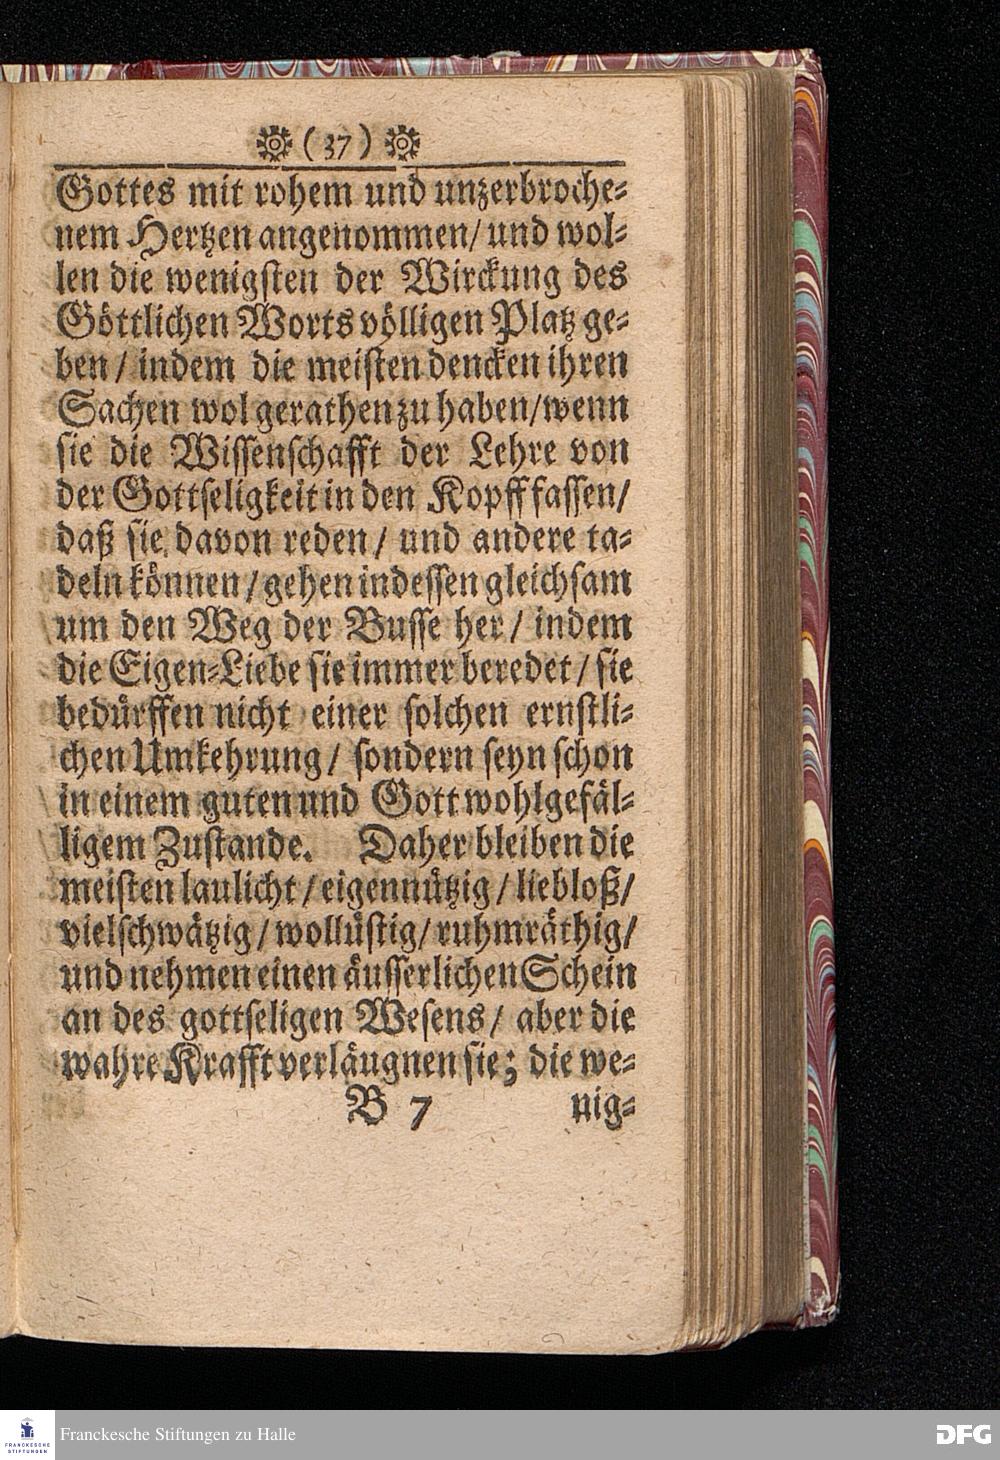 ( 37 )
Gottes mit rohem und unzerbroche-
nem Hertzen angenommen/ und wol-
len die wenigsten der Wirckung des
Göttlichen Worts völligen Platz ge-
ben / indem die meisten dencken ihren
Sachen wol gerathen zu haben/wenn
sie die Wissenschafft der Lehre von
der Gottseligkeit in den Kopff fassen/
daß sie davon reden / und andere ta-
deln können / gehen indessen gleichsam
um den Weg der Busse her / indem
die Eigen-Liebe sie immer beredet / sie
bedürffen nicht einer solchen ernstli-
chen Umkehrung / sondern seyn schon
in einem guten und Gott wohlgefäl-
ligem Zustande. Daher bleiben die
meisten laulicht / eigennützig / liebloß/
vielschwätzig / wollüstig/ ruhmräthig/
und nehmen einen äusserlichen Schein
an des gottseligen Wesens/ aber die
wahre Krafft verläugnen sie; die we-
B 7 nig-
FRANCKESCHE
STIFTUNGEN
Franckesche Stiftungen zu Halle
DFG